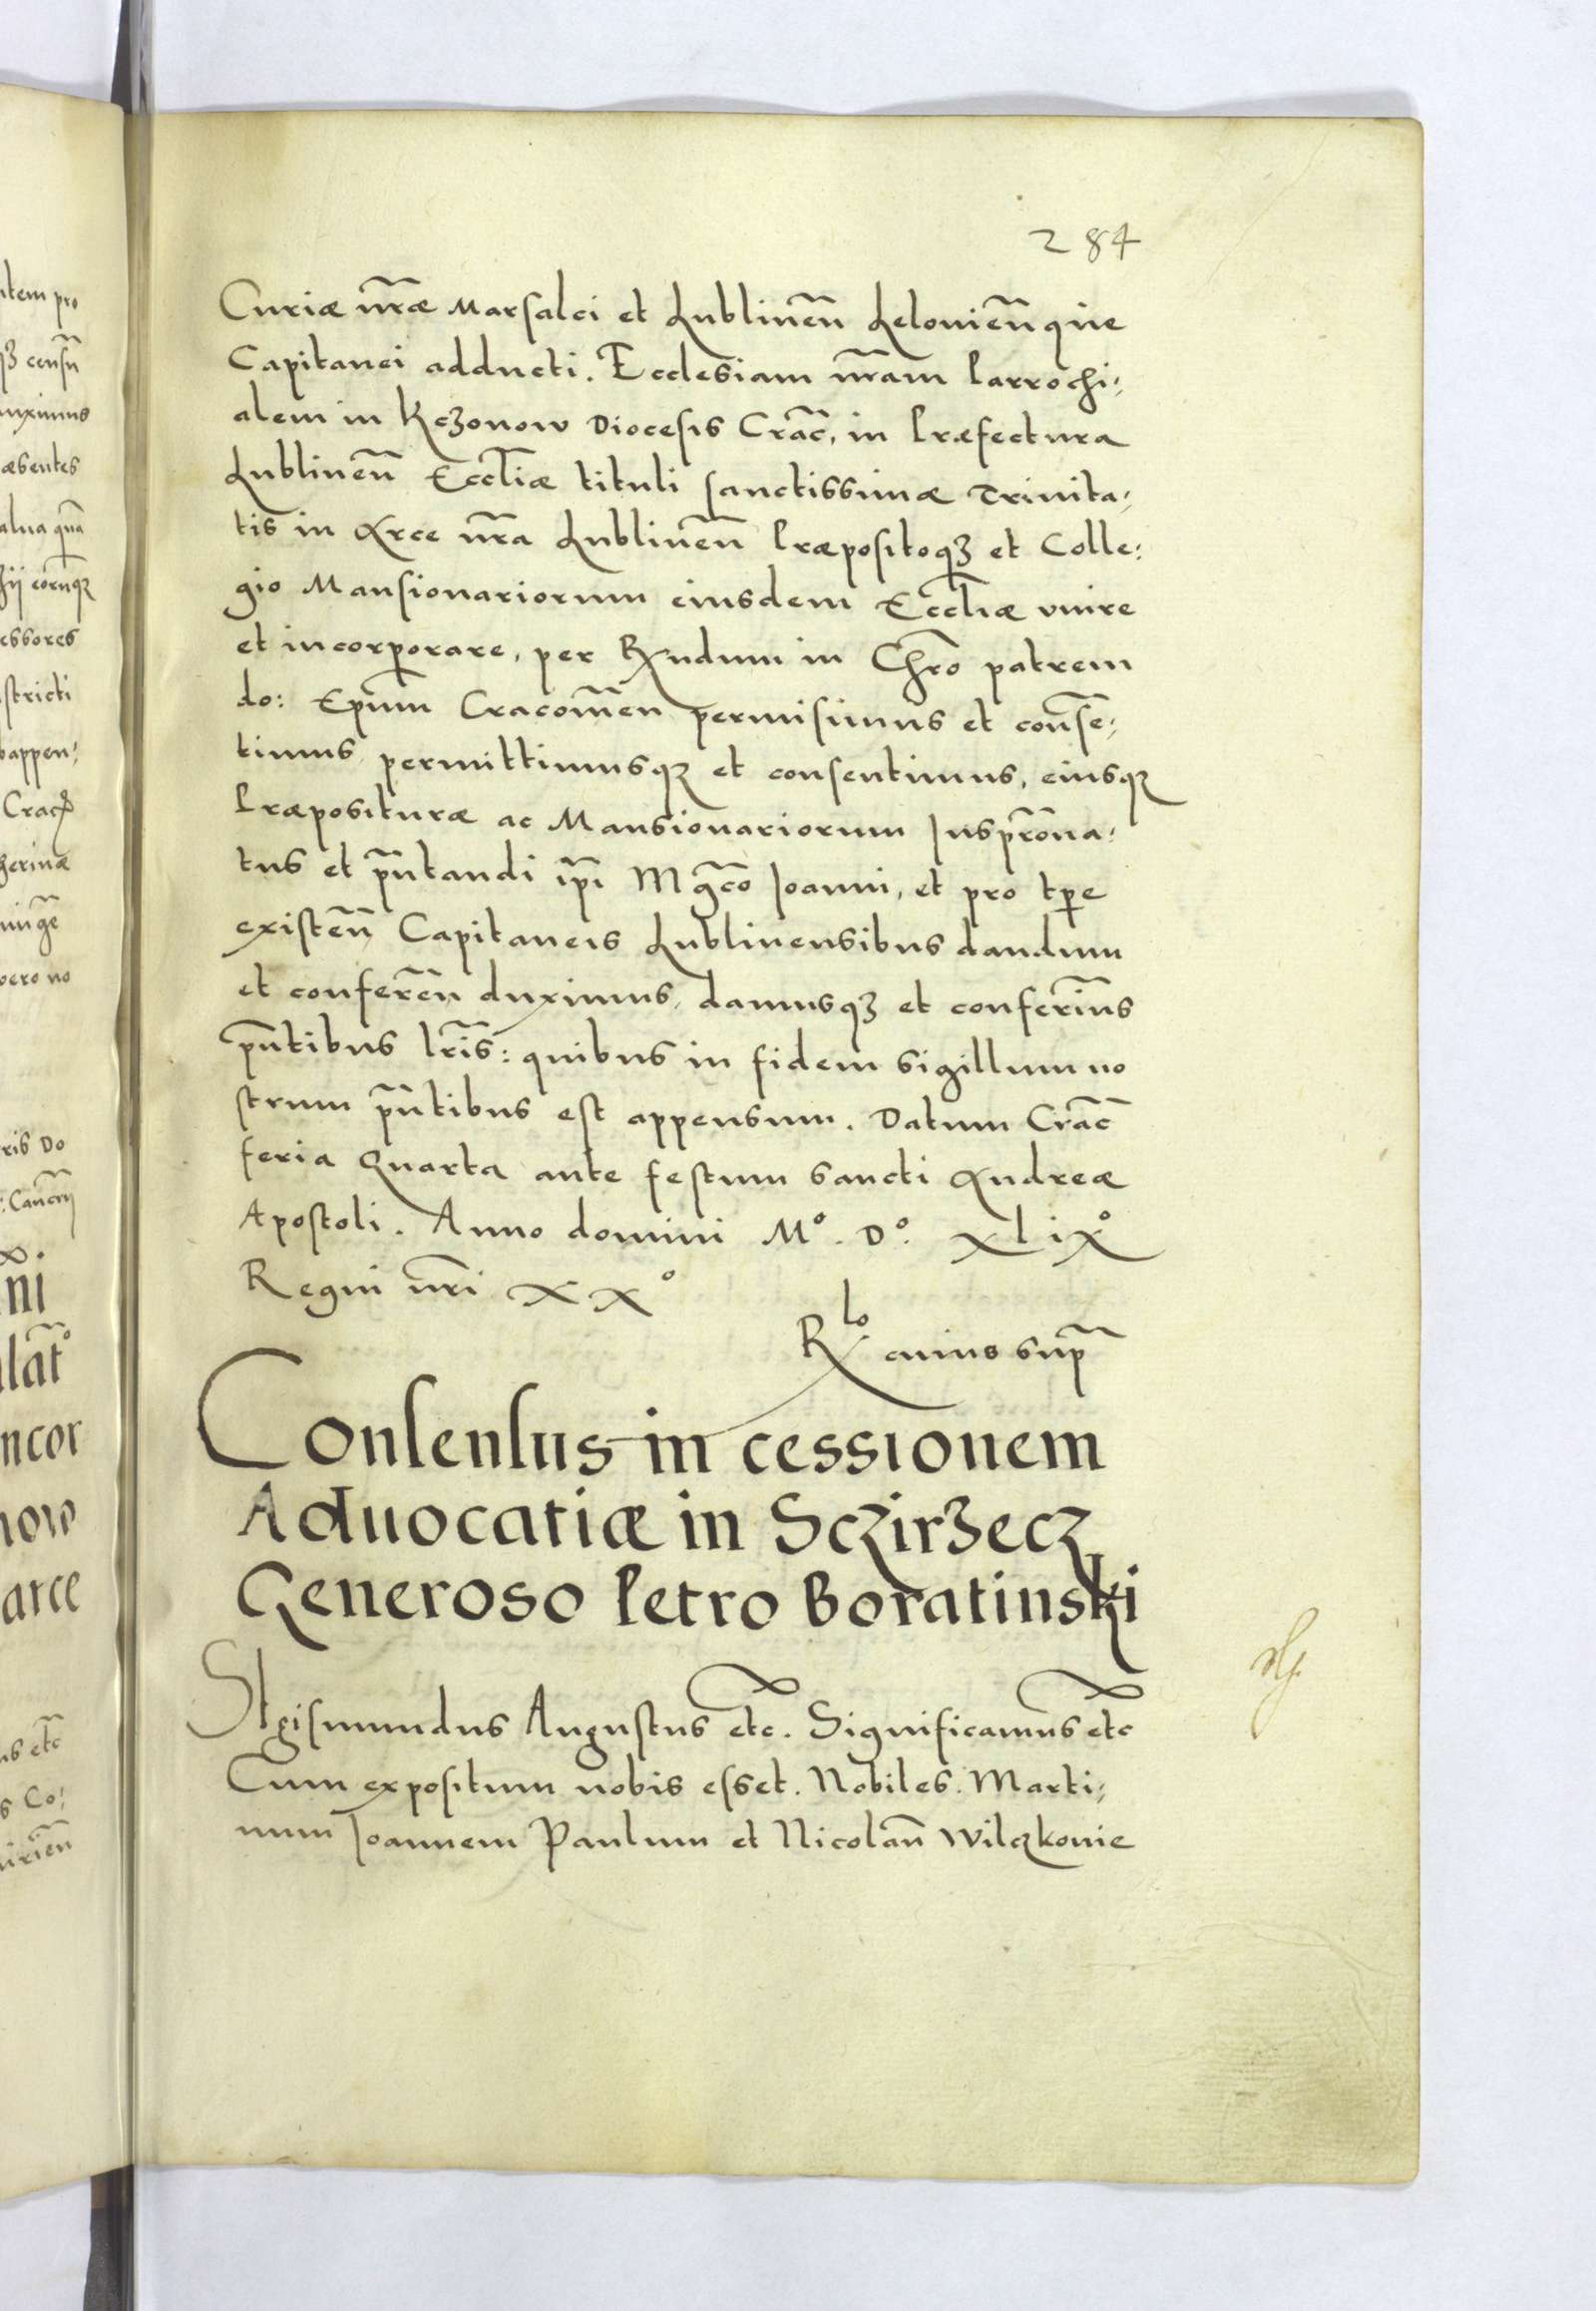 284
Curiæ nr̃æ Marsalci et Lublineñ Lelovieñ que
Capitanei adducti. Ecclesiam nr̃am Parrochi;
alem in Kczonow Diocesis Crac̃, in Præfectura
Lublineñ Eccl̃iæ tituli sanctissimæ Trinita,
tis in Arce nr̃a Lublineñ Præpositoqꝫ et Colle:
gio Mansionariorum eiusdem Eccl̃iæ vnire
et incorporare, per Rx̃ndum in Chr̃o patrem
do: Ep̃um Cracovieñ permisimus et conse̅;
timus, permittimusqꝫ et consentimus, eiusqꝫ
Præposituræ ac Mansionariorum Juspr̃ona:
tus et pñtandi ip̃i Mg̃co Joanni, et pro tp̃e
existeñ Capitaneis Lublinensibus dandum
et confereñ duximus, damusqꝫ et conferim̃us
pñtibus lr̃is: quibus in fidem sigillum no
strum pñtibus est appensum. Datum Crac̃
feria Quarta ante festum sancti Andreæ
Apostoli. Anno domini Mº. Dº. xlixº
Regni nr̃i xxº
Rlo cuius sup̃
Consensus in cessionem
Aduocatiæ in Sczirzecz
Generoso Petro Boratinski
SIgismundus Augustus etc̃. Significamus etc̃
Cum expositum nobis esset. Nobiles. Marti;
num Joannem Paulum et Nicolaũ Wilczkovie